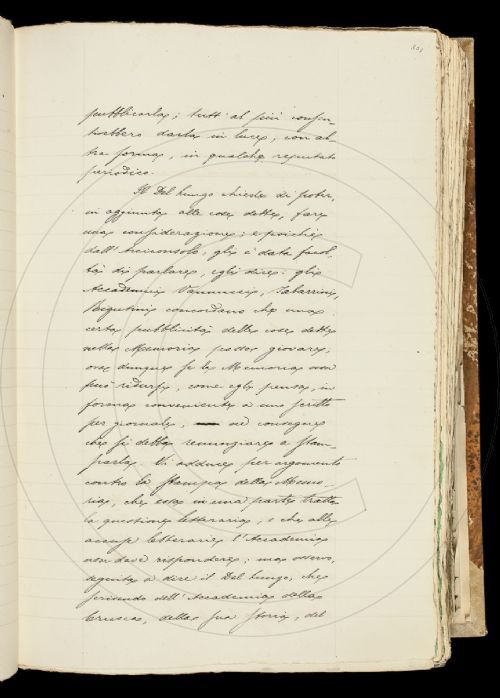 pubblicarla; tutt' al più consen-
tirebbero darla in luce, con al-
tra forma, in qualche reputato
periodico.
Il Del Lungo chiede di poter,
in aggiunta alle cose dette, fare
una considerazione; e poichè
dall' Arciconsolo, gli è data facol-
tà di parlare, egli dice: gli
Accademici Vannucci, Tabarrini,
Rigutini concordano che una
certa pubblicità delle cose dette
nella Memoria possa giovare;
ora dunque se la Memoria non
può ridursi, come egli pensa, in
forma conveniente a uno scritto
per giornale, ne consegue
che si debba renunziare a stam-
parla. Si adduce per argomento
contro la stampa della Memo-
ria, che essa in una parte tratta
la questione letteraria; e che alle
accuse letterarie l' Accademia
non deve rispondere; ma osservo,
seguita a dire il Del Lungo, che
scrivendo dell' Accademia della
Crusca, della sua storia, del